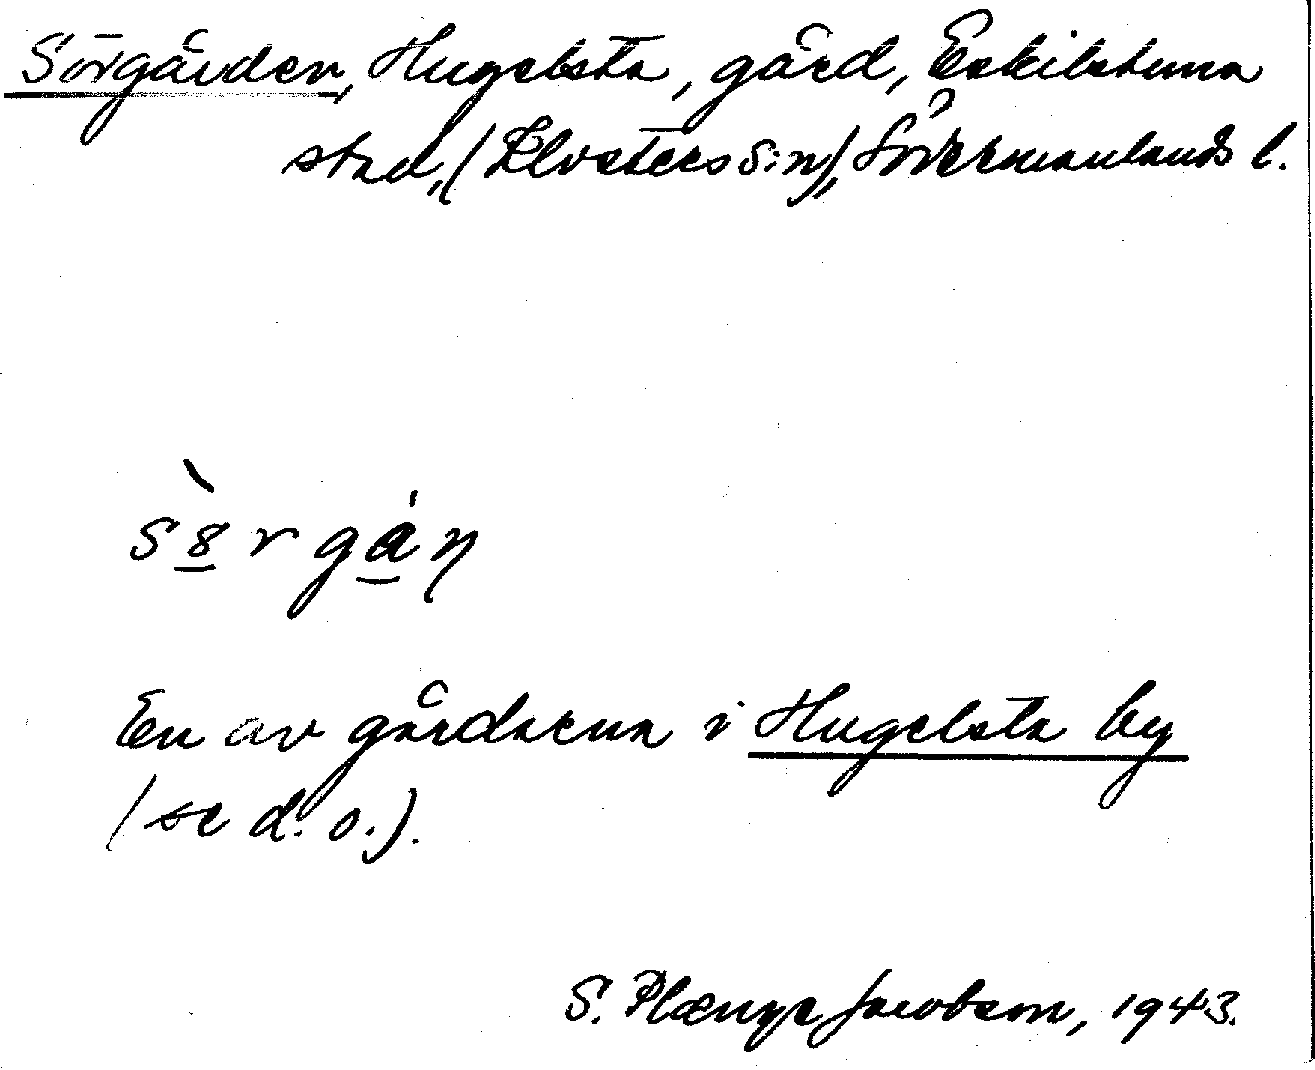 Sörgården, Hugelsta, gård, Eskilstuna
stad, (Klosters s:n), Södermanlands l.
s8̲̀rga̲̍n
En av gårdarna i Hugelsta by
(se d. o.).
S. Plænge Jacobson, 1943.